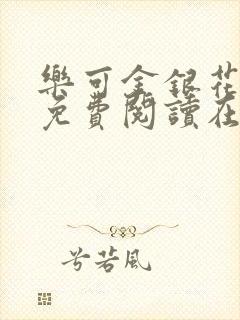 樂可金銀花
免費閱讀在
兮若風